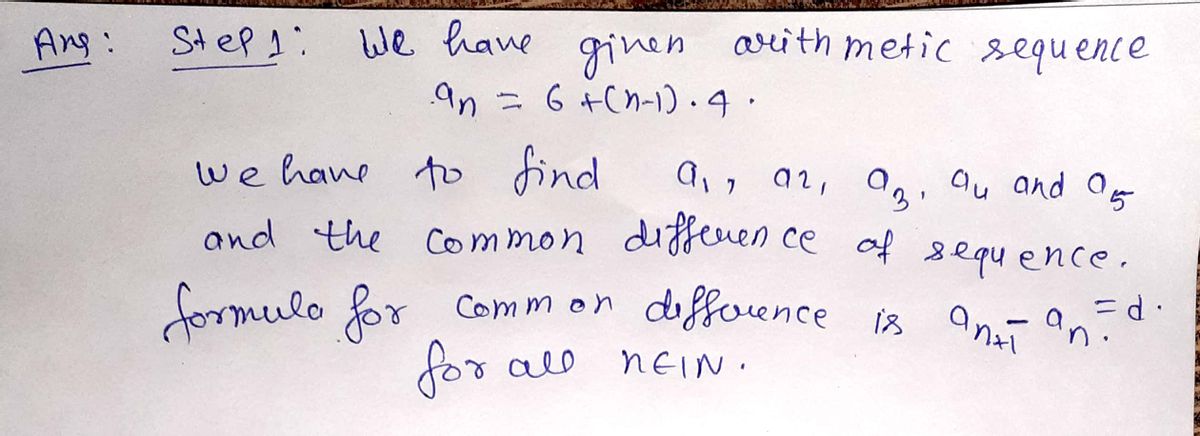 Ans : Step 1: We have given arithmetic sequence
an = 6 +(n-1) . 4 .
we have to find a₁, a2, a₃, a₄ and a₅
and the common difference of sequence.
formula for common difference is aₙ₊₁ - aₙ = d.
for all n∈IN.